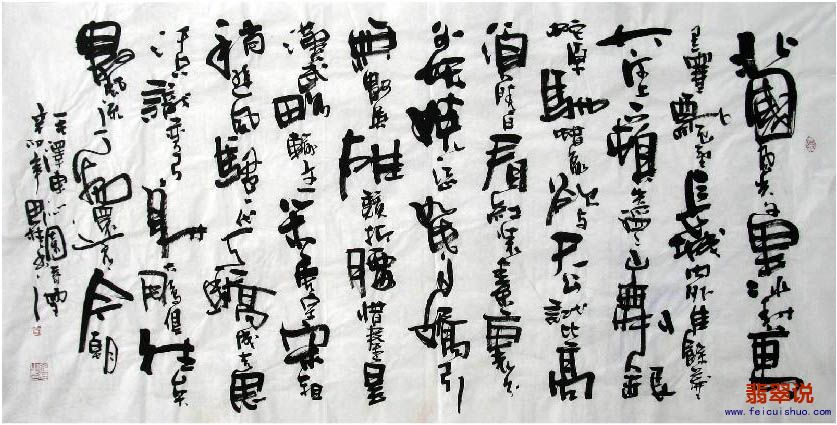 北國風光千里冰封萬
里雪飄望長城內外惟餘莽
大河上下頓失滔滔山舞銀
蛇原馳蠟象欲與天公試比高
須晴日看紅裝素裹分
外妖嬈江山如此多嬌引
無數英雄競折腰惜秦皇
漢武略輸文采唐宗宋祖
稍遜風騷一代天驕成吉思
汗只識彎弓射大鵰俱往矣
數風流人物還看今朝
毛澤東沁園春雪
辛卯年
翡翠说
www.feicuishuo.com